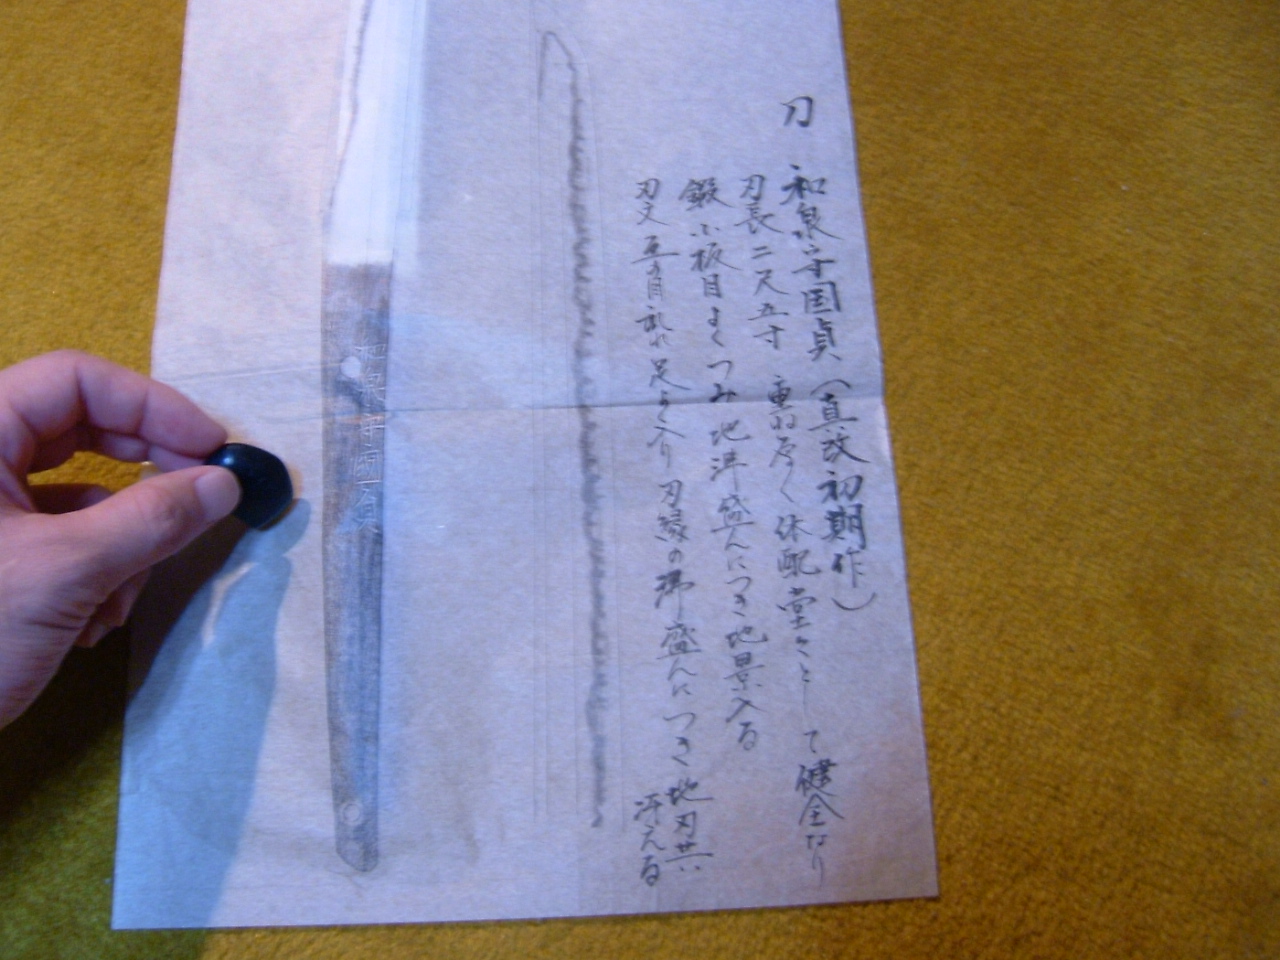 刀 和泉守国貞(真改初期作)
刃長二尺五寸 重ね厚く体配堂々として健全なり
鍛 小板目よくつみ地沸盛んにつき地景入る
刃文 互の目乱れ足よく入り刃縁の沸盛んにつき地刃共
冴える
和泉守國貞